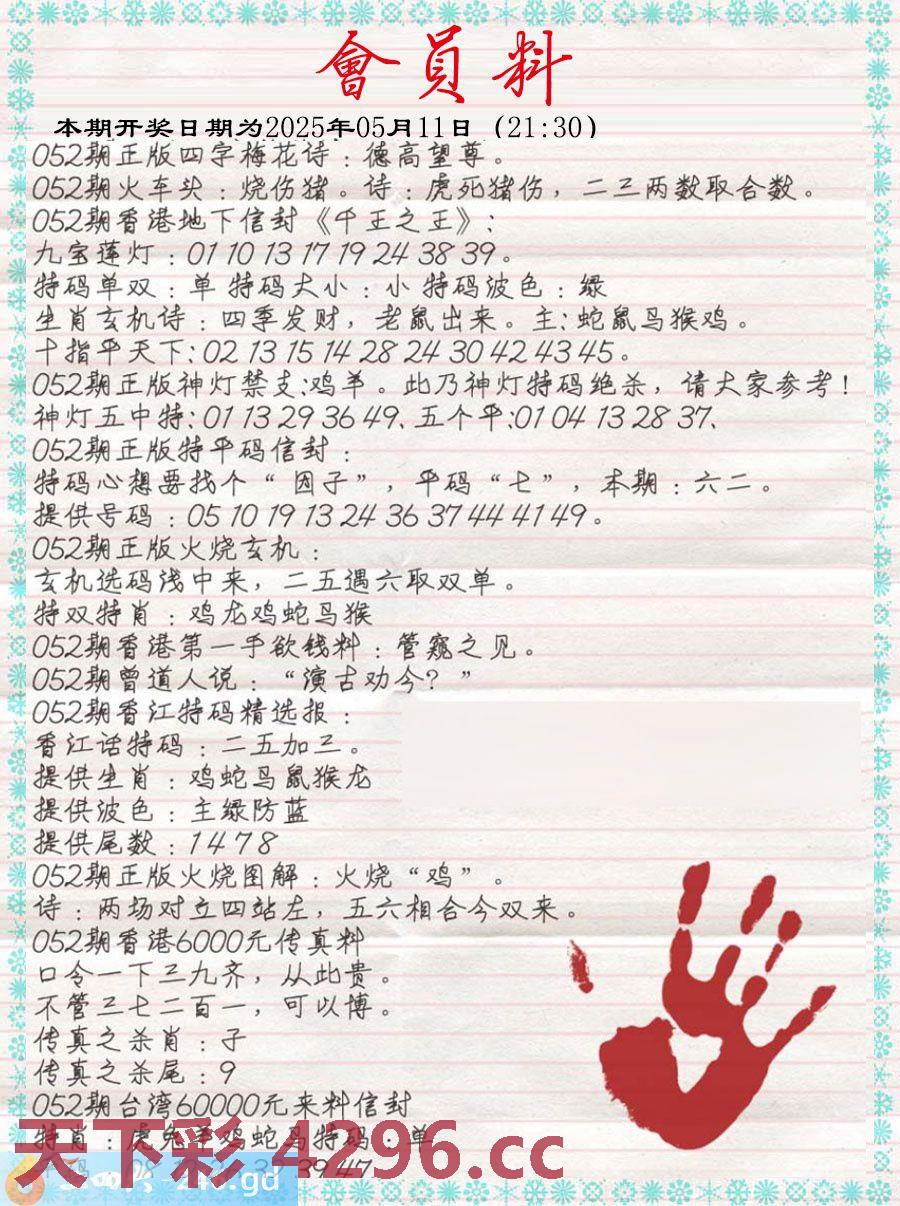 會員料
本期开奖日期为2025年05月11日（21:30）
052期正版四字梅花诗：德高望尊。
052期火车头：烧伤猪。诗：虎死猪伤，二三两数取合数。
052期香港地下信封《千王之王》：
九宝莲灯：01 10 13 17 19 24 38 39。
特码单双：单 特码大小：小 特码波色：绿
生肖玄机诗：四季发财，老鼠出来。主：蛇鼠马猴鸡。
十指平天下：02 13 15 14 28 24 30 42 43 45。
052期正版神灯禁支：鸡羊。此乃神灯特码绝杀，请大家参考！
神灯五中特：01 13 29 36 49、五个平：01 04 13 28 37、
052期正版特平码信封：
特码心想要找个“因子”，平码“七”，本期：六二。
提供号码：05 10 19 13 24 36 37 44 41 49。
052期正版火烧玄机：
玄机选码浅中来，二五遇六取双单。
特双特肖：鸡龙鸡蛇马猴
052期香港第一手欲钱料：管窥之见。
052期曾道人说：“演古劝今？”
052期香江特码精选报：
香江话特码：二五加三。
提供生肖：鸡蛇马鼠猴龙
提供波色：主绿防蓝
提供尾数：1 4 7 8
052期正版火烧图解：火烧“鸡”。
诗：两场对立四站左，五六相合今双来。
052期香港6000元传真料
口令一下三九齐，从此贵。
不管三七二百一，可以博。
传真之杀肖：子
传真之杀尾：9
052期台湾60000元来料信封
特肖：虎兔羊鸡蛇马特码：单
天下彩 4296.cc
39 47